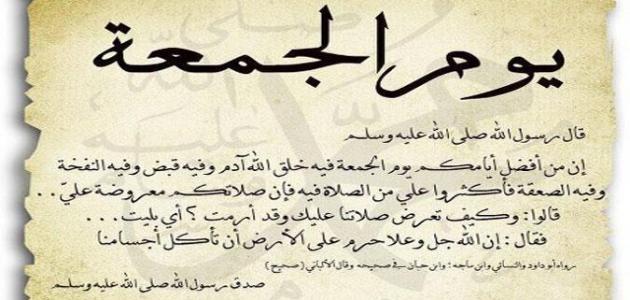 يوم الجمعة
قال رسول الله صلى الله عليه وسلم
إن من أفضل أيامكم يوم الجمعة فيه خلق الله آدم وفيه قبض وفيه النفخة
وفيه الصعقة فأكثروا علي من الصلاة فيه فإن صلاتكم معروضة عليّ . .
قالوا : وكيف تعرض صلاتنا عليك وقد أرمت ؟ أي بليت . . .
فقال : إن الله جل وعلا حرم على الأرض أن تأكل أجسامنا
رواه أبو داود والنسائي وابن ماجه ؛ وابن حبان في صحيحه وقال الألباني ( صحيح )
صدق رسول الله صلى الله عليه وسلم